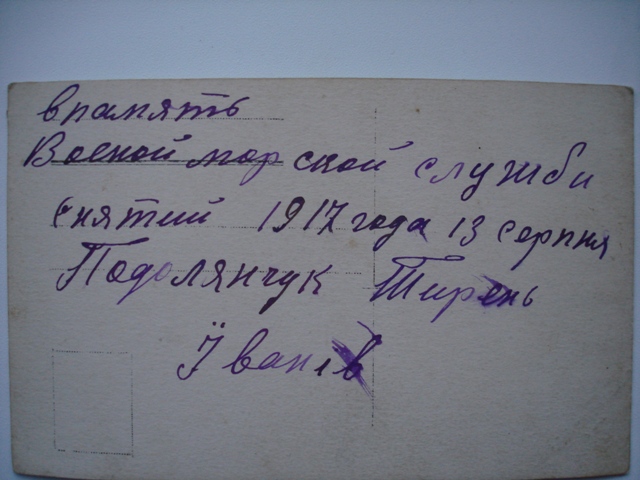 впамять
Военой морской служби
снятий 1917 года 13 серпня
Подолянчук Тирень
Їванів